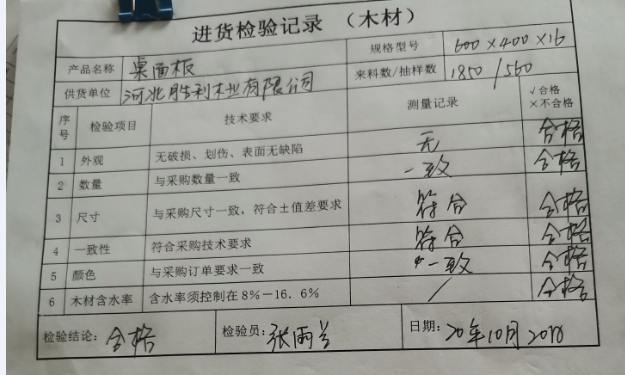 进货检验记录 （木材）
产品名称 桌面板 规格型号 600×400×16
供货单位 河北胜利木业有限公司 来料数/抽样数 1850/560
序号 检验项目 技术要求 测量记录 √合格 ×不合格
1 外观 无破损、划伤、表面无缺陷 无 合格
2 数量 与采购数量一致 一致 合格
3 尺寸 与采购尺寸一致，符合土值差要求 符合 合格
4 一致性 符合采购技术要求 符合 合格
5 颜色 与采购订单要求一致 一致 合格
6 木材含水率 含水率须控制在8%－16.6% / 合格
检验结论：合格 检验员：张雨兰 日期：20年10月20